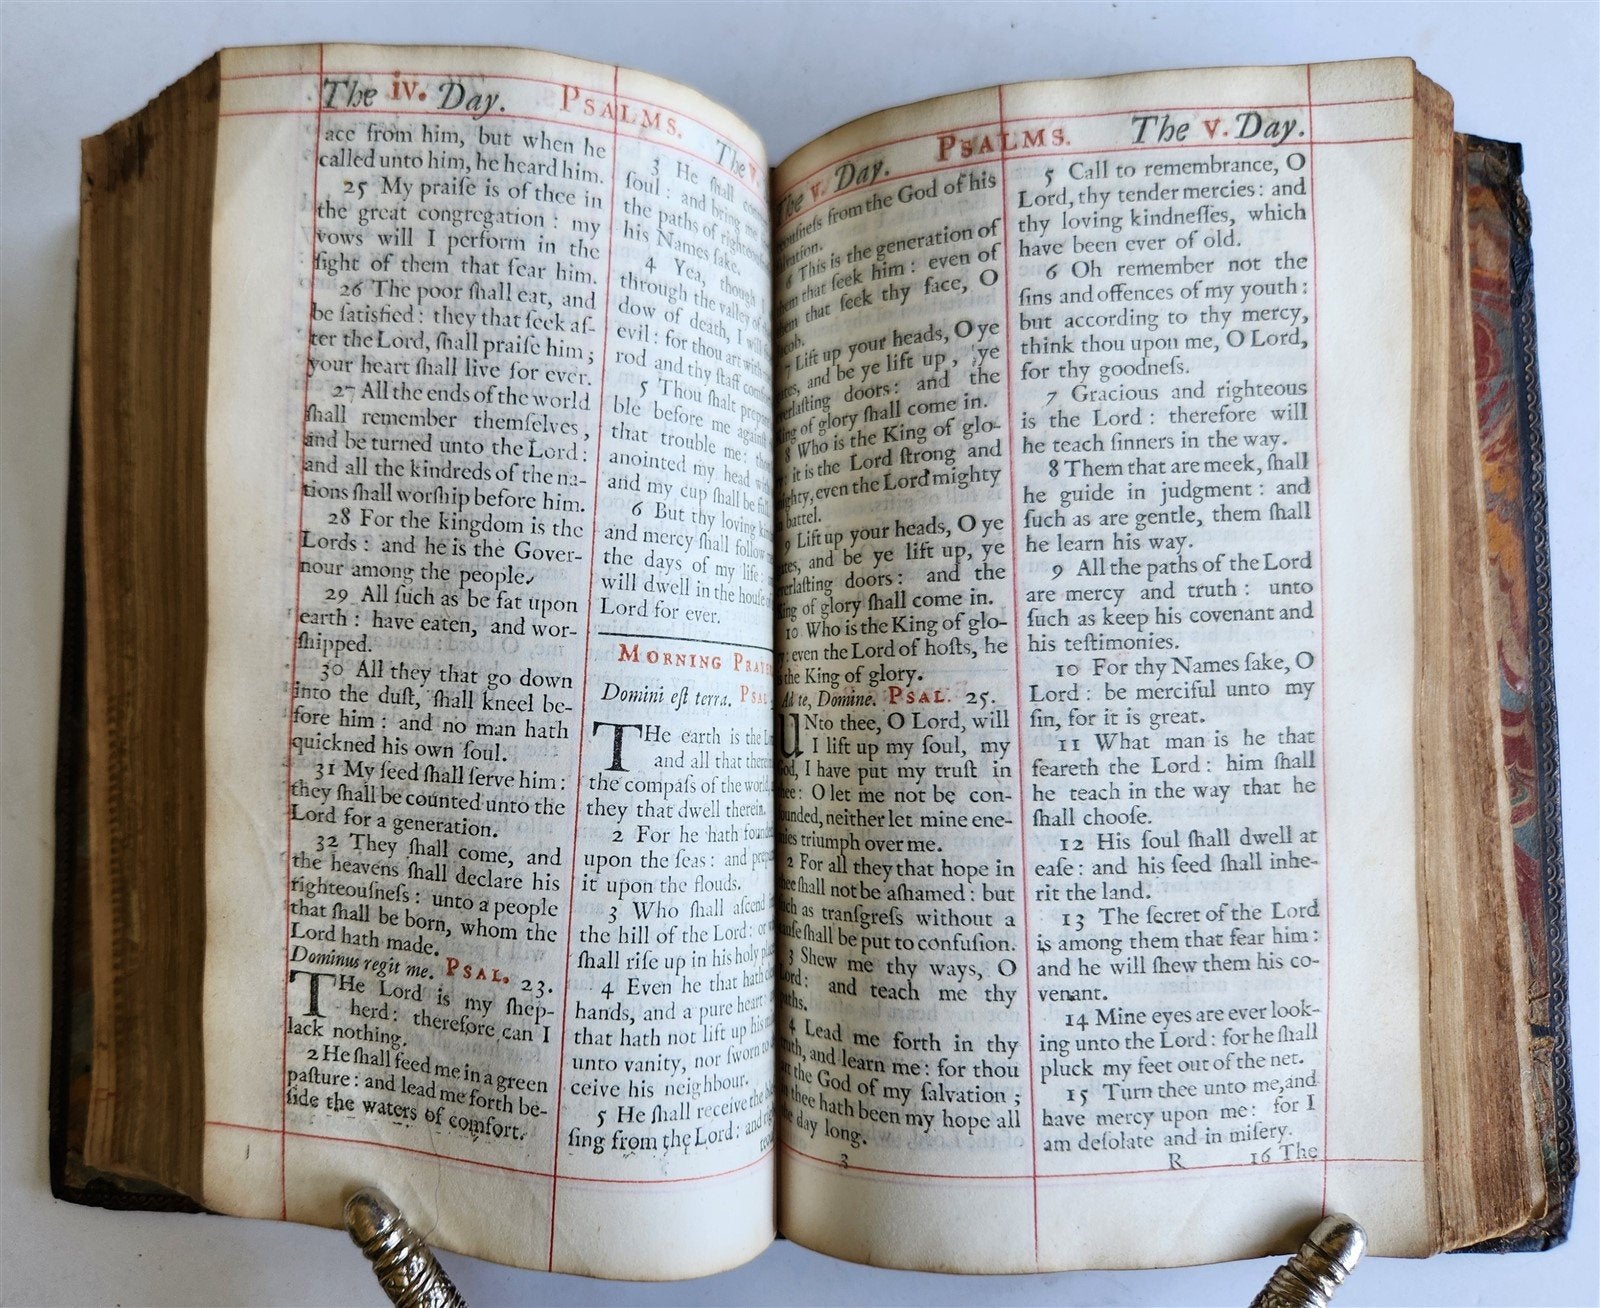 The iv. Day. PSALMS. The v.
ace from him, but when he
called unto him, he heard him.
25 My praiſe is of thee in
the great congregation : my
vows will I perform in the
ſight of them that fear him.
26 The poor ſhall eat, and
be ſatisfied : they that ſeek af-
ter the Lord, ſhall praiſe him ;
your heart ſhall live for ever.
27 All the ends of the world
ſhall remember themſelves,
and be turned unto the Lord :
and all the kindreds of the na-
tions ſhall worſhip before him.
28 For the kingdom is the
Lords : and he is the Gover-
nour among the people.
29 All ſuch as be fat upon
earth : have eaten, and wor-
ſhipped.
30 All they that go down
into the duſt, ſhall kneel be-
fore him : and no man hath
quickned his own ſoul.
31 My ſeed ſhall ſerve him :
they ſhall be counted unto the
Lord for a generation.
32 They ſhall come, and
the heavens ſhall declare his
righteouſneſs : unto a people
that ſhall be born, whom the
Lord hath made.
Dominus regit me. PSAL. 23.
THe Lord is my ſhep-
herd : therefore can I
lack nothing.
2 He ſhall feed me in a green
paſture : and lead me forth be-
ſide the waters of comfort.
3 He ſhall
ſoul : and bring me
the paths of
his Names ſake.
4 Yea, though
through the valley of
dow of death, I will
evil : for thou art with
rod and thy ſtaff
5 Thou ſhalt
ble before me
that trouble me :
anointed my head
and my cup ſhall be
6 But thy loving
and mercy ſhall follow
the days of my life :
will dwell in the houſe of
Lord for ever.
MORNING
Domini eſt terra. PSAL
THe earth is the
and all that
the compaſs of the world,
they that dwell therein.
2 For he hath
upon the ſeas : and
it upon the flouds.
3 Who ſhall aſcend
the hill of the Lord : or
ſhall riſe up in his holy
4 Even he that hath
hands, and a pure heart :
that hath not lift up his
unto vanity, nor ſworn to
ceive his neighbour.
5 He ſhall receive the
ſing from the Lord : and
The v. Day. PSALMS. The v. Day.
from the God of his
6 This is the generation of
them that ſeek him : even of
them that ſeek thy face, O
7 Lift up your heads, O ye
and be ye lift up, ye
doors : and the
King of glory ſhall come in.
8 Who is the King of glo-
it is the Lord ſtrong and
even the Lord mighty
battel.
9 Lift up your heads, O ye
and be ye lift up, ye
doors : and the
King of glory ſhall come in.
10 Who is the King of glo-
even the Lord of hoſts, he
is the King of glory.
Ad te, Domine. PSAL. 25.
UNto thee, O Lord, will
I lift up my ſoul, my
God, I have put my truſt in
thee : O let me not be con-
founded, neither let mine ene-
mies triumph over me.
2 For all they that hope in
thee ſhall not be aſhamed : but
ſuch as tranſgreſs without a
cauſe ſhall be put to confuſion.
3 Shew me thy ways, O
Lord : and teach me thy
paths.
4 Lead me forth in thy
truth, and learn me : for thou
art the God of my ſalvation ;
in thee hath been my hope all
the day long.
3
5 Call to remembrance, O
Lord, thy tender mercies : and
thy loving kindneſſes, which
have been ever of old.
6 Oh remember not the
ſins and offences of my youth :
but according to thy mercy,
think thou upon me, O Lord,
for thy goodneſs.
7 Gracious and righteous
is the Lord : therefore will
he teach ſinners in the way.
8 Them that are meek, ſhall
he guide in judgment : and
ſuch as are gentle, them ſhall
he learn his way.
9 All the paths of the Lord
are mercy and truth : unto
ſuch as keep his covenant and
his teſtimonies.
10 For thy Names ſake, O
Lord : be merciful unto my
ſin, for it is great.
11 What man is he that
feareth the Lord : him ſhall
he teach in the way that he
ſhall chooſe.
12 His ſoul ſhall dwell at
eaſe : and his ſeed ſhall inhe-
rit the land.
13 The ſecret of the Lord
is among them that fear him :
and he will ſhew them his co-
venant.
14 Mine eyes are ever look-
ing unto the Lord : for he ſhall
pluck my feet out of the net.
15 Turn thee unto me, and
have mercy upon me : for I
am deſolate and in miſery.
R 16 The